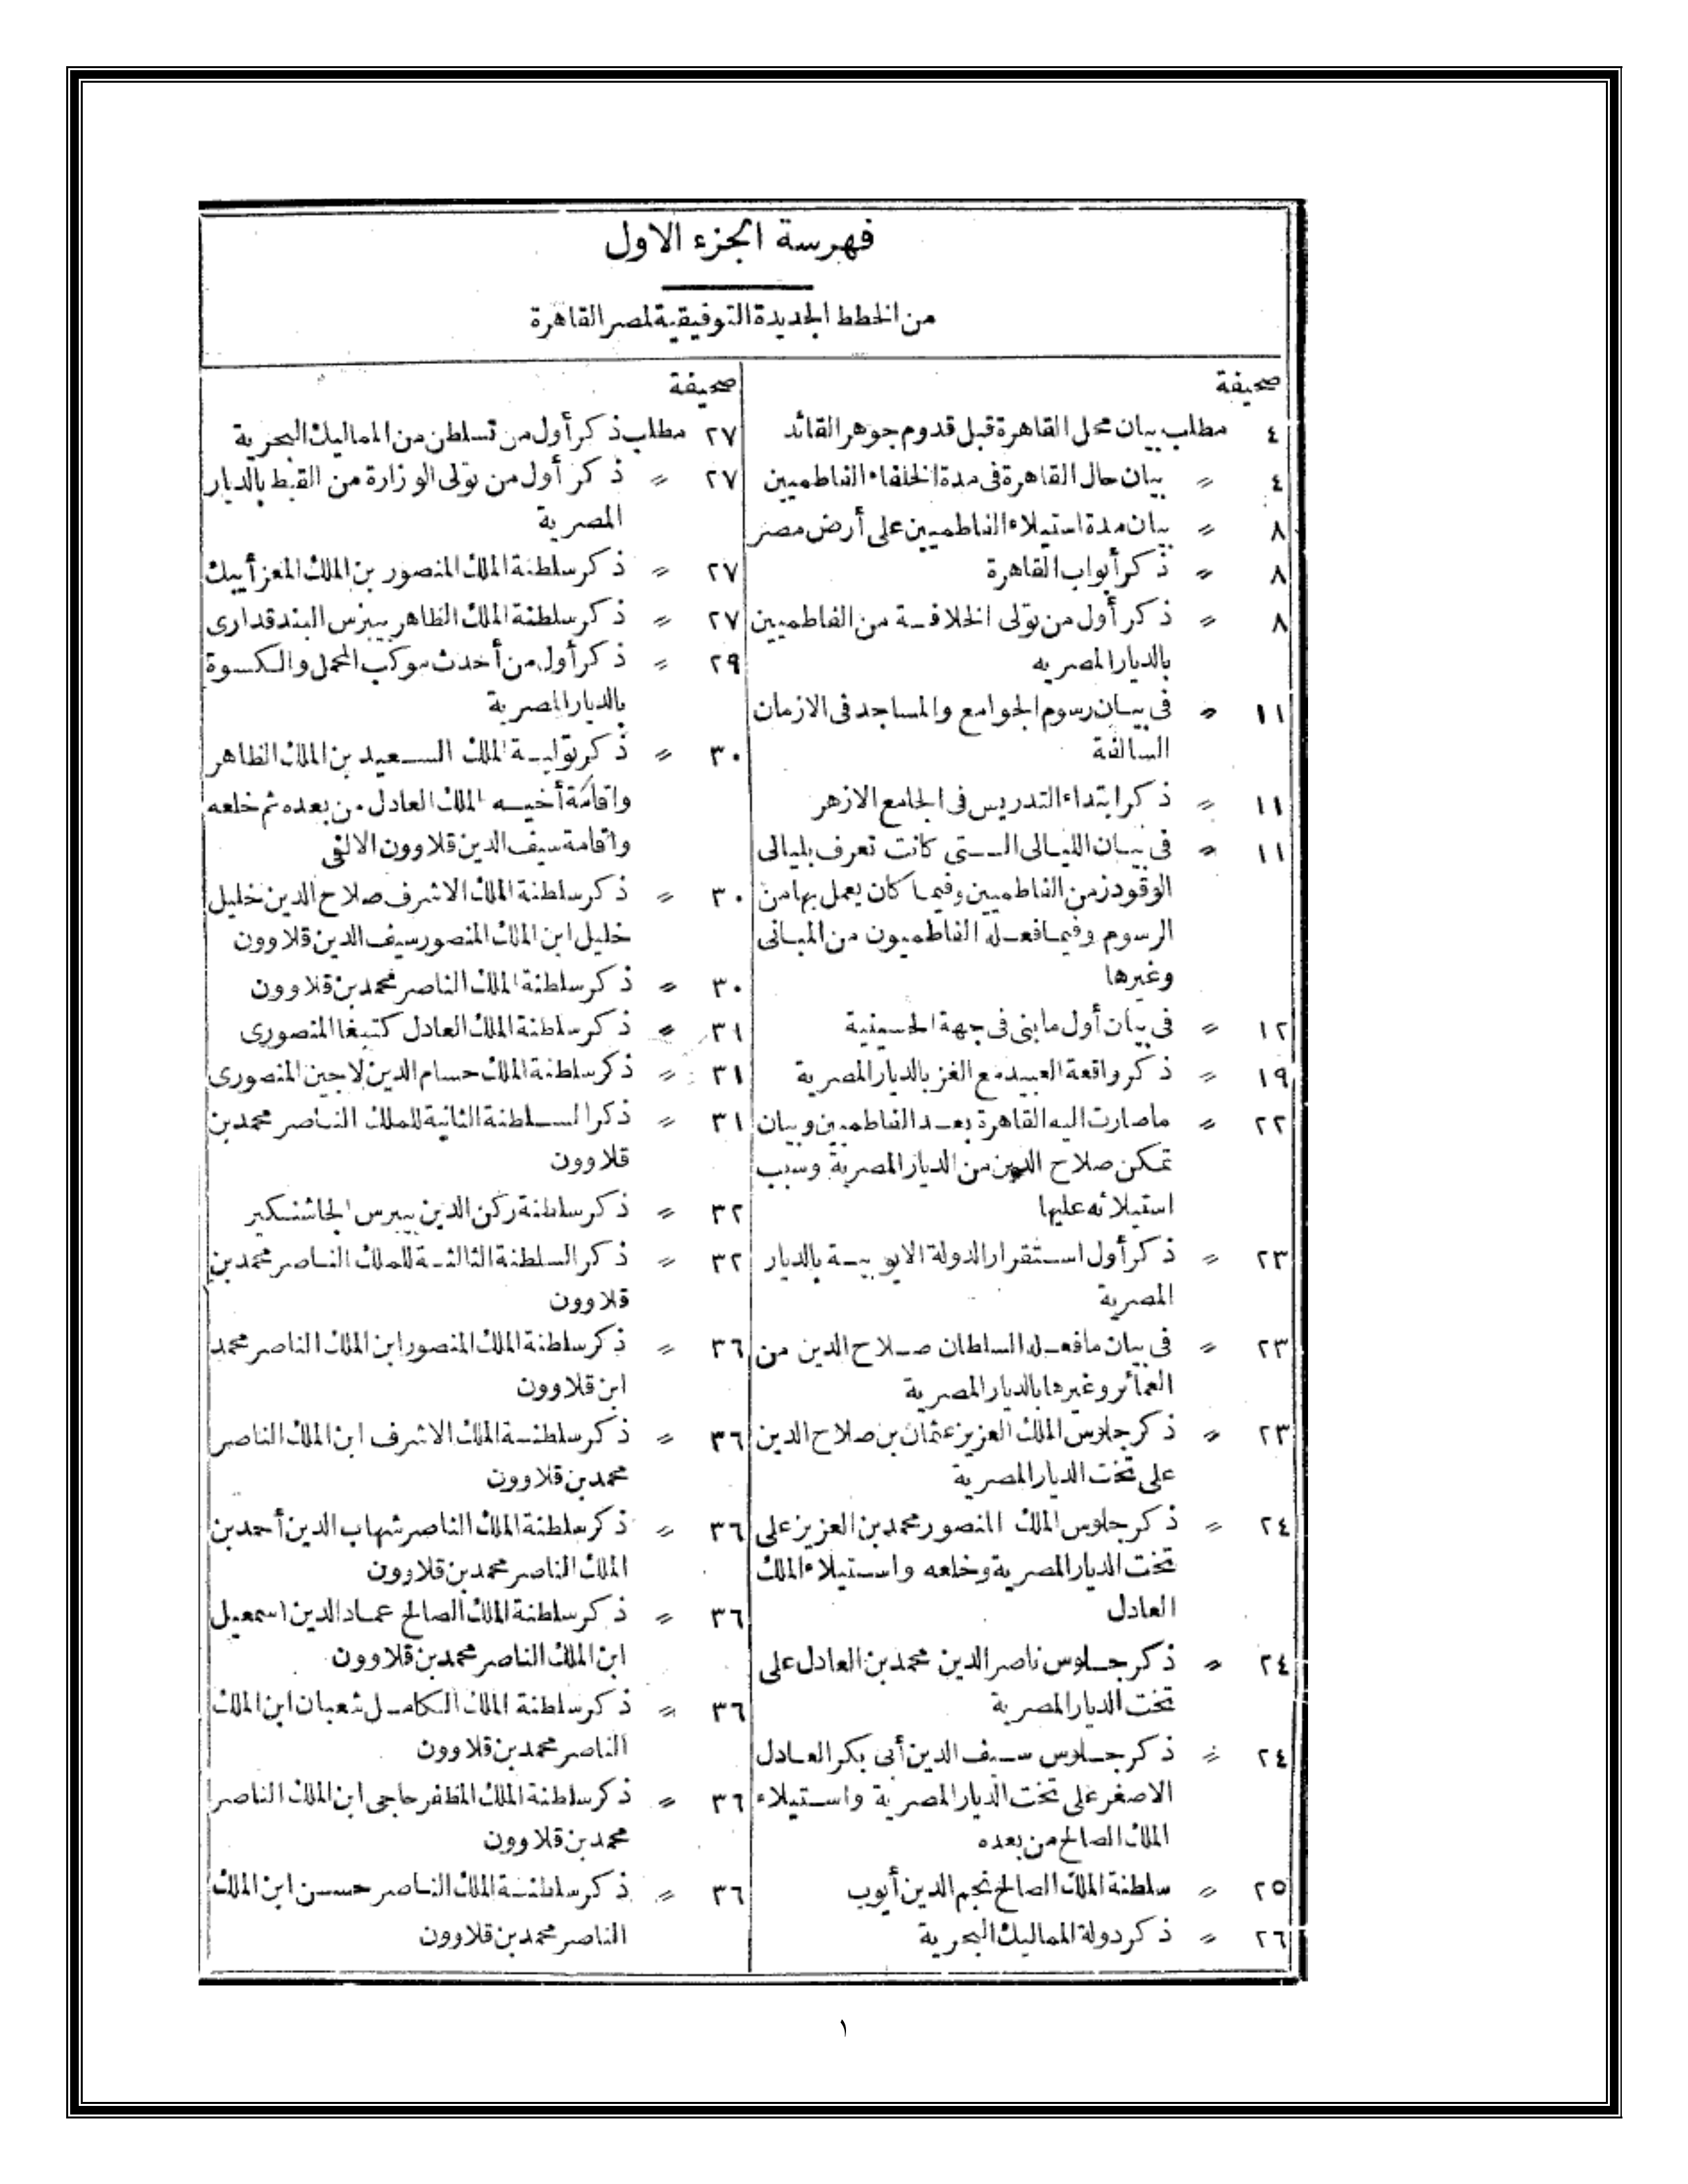 فهرسة الجزء الاول
من الخطط الجديدة التوفيقية لمصر القاهرة
صحيفة
٤ مطلب بيان محل القاهرة قبل قدوم جوهر القائد
٤ » بيان حال القاهرة فى مدة الخلفاء الفاطميين
٨ » بيان مدة استيلاء الفاطميين على أرض مصر
٨ » ذكر أبواب القاهرة
٨ » ذكر أول من تولى الخلافة من الفاطميين
بالديار المصريه
١١ » فى بيان رسوم الجوامع والمساجد فى الازمان
السالفة
١١ » ذكر ابتداء التدريس فى الجامع الازهر
١١ » فى بيان الليالى التى كانت تعرف بليالى
الوقود زمن الفاطميين وفيما كان يعمل بها من
الرسوم وفيما فعله الفاطميون من المبانى
وغيرها
١٢ » فى بيان أول ما بنى فى جهة الحسينية
١٩ » ذكر واقعة العبيد مع الغز بالديار المصرية
٢٢ » ما صارت اليه القاهرة بعد الفاطميين وبيان
تمكن صلاح الدين من الديار المصرية وسبب
استيلائه عليها
٢٣ » ذكر أول استقرار الدولة الايوبية بالديار
المصرية
٢٣ » فى بيان ما فعله السلطان صلاح الدين من
العمائر وغيرها بالديار المصرية
٢٣ » ذكر جلوس الملك العزيز عثمان بن صلاح الدين
على تخت الديار المصرية
٢٤ » ذكر جلوس الملك المنصور محمد بن العزيز على
تخت الديار المصرية وخلعه واستيلاء الملك
العادل
٢٤ » ذكر جلوس ناصر الدين محمد بن العادل على
تخت الديار المصرية
٢٤ » ذكر جلوس سيف الدين أبى بكر العادل
الاصغر على تخت الديار المصرية واستيلاء
الملك الصالح من بعده
٢٥ » سلطنة الملك الصالح نجم الدين أيوب
٢٦ » ذكر دولة المماليك البحرية
صحيفة
٢٧ مطلب ذكر أول من تسلطن من المماليك البحرية
٢٧ » ذكر أول من تولى الوزارة من القبط بالديار
المصرية
٢٧ » ذكر سلطنة الملك المنصور بن الملك المعز أيبك
٢٧ » ذكر سلطنة الملك الظاهر بيبرس البندقدارى
٢٩ » ذكر أول من أحدث موكب المحمل والكسوة
بالديار المصرية
٣٠ » ذكر تولية الملك السعيد بن الملك الظاهر
واقامة أخيه الملك العادل من بعده ثم خلعه
واقامة سيف الدين قلاوون الالفى
٣٠ » ذكر سلطنة الملك الاشرف صلاح الدين خليل
خليل ابن الملك المنصور سيف الدين قلاوون
٣٠ » ذكر سلطنة الملك الناصر محمد بن قلاوون
٣١ » ذكر سلطنة الملك العادل كتبغا المنصورى
٣١ » ذكر سلطنة الملك حسام الدين لاجين المنصورى
٣١ » ذكر السلطنة الثانية للملك الناصر محمد بن
قلاوون
٣٢ » ذكر سلطنة ركن الدين بيبرس الجاشنكير
٣٢ » ذكر السلطنة الثالثة للملك الناصر محمد بن
قلاوون
٣٦ » ذكر سلطنة الملك المنصور ابن الملك الناصر محمد
ابن قلاوون
٣٦ » ذكر سلطنة الملك الاشرف ابن الملك الناصر
محمد بن قلاوون
٣٦ » ذكر سلطنة الملك الناصر شهاب الدين أحمد بن
الملك الناصر محمد بن قلاوون
٣٦ » ذكر سلطنة الملك الصالح عماد الدين اسمعيل
ابن الملك الناصر محمد بن قلاوون
٣٦ » ذكر سلطنة الملك الكامل شعبان ابن الملك
الناصر محمد بن قلاوون
٣٦ » ذكر سلطنة الملك المظفر حاجى ابن الملك الناصر
محمد بن قلاوون
٣٦ » ذكر سلطنة الملك الناصر حسن ابن الملك
الناصر محمد بن قلاوون
١